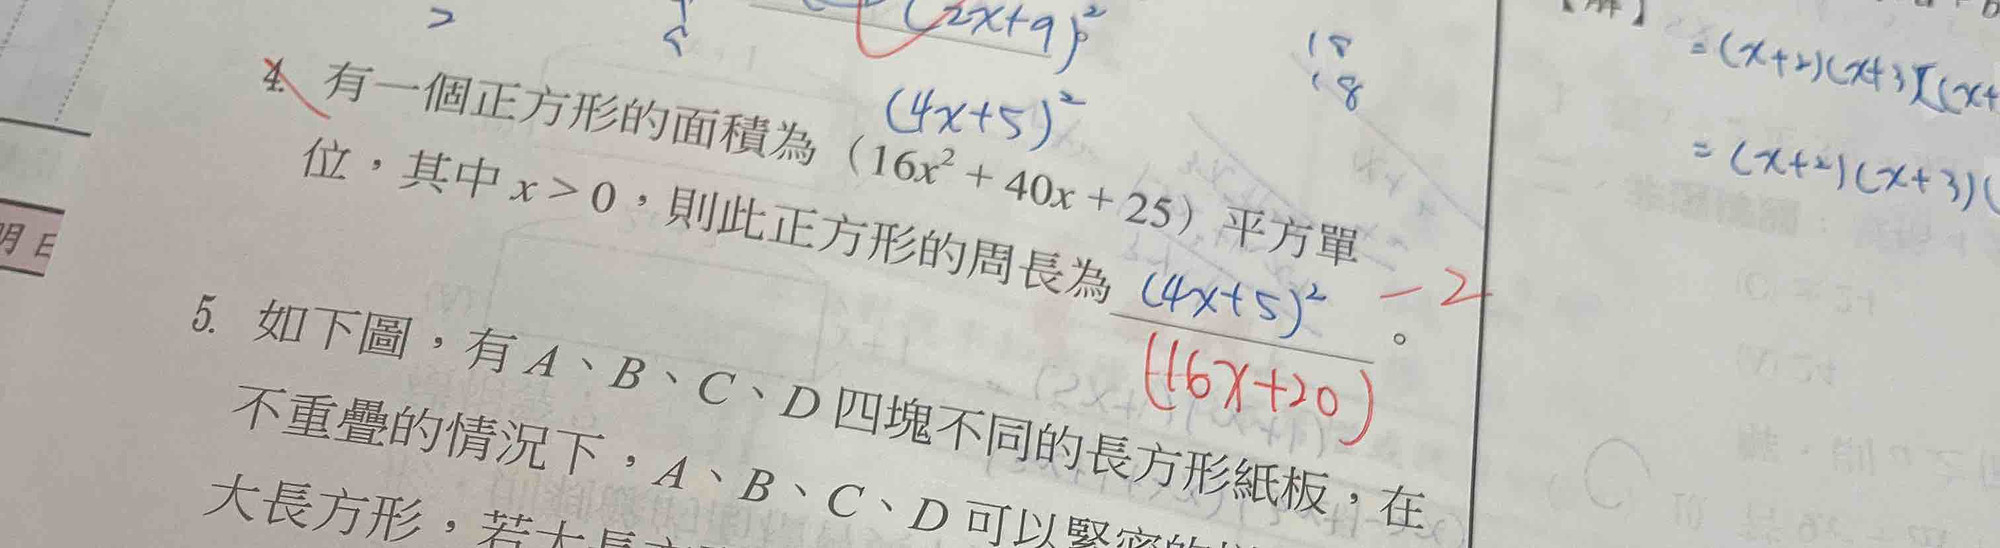 (2x+9)²
18
18
(4x+5)²
4. 有一個正方形的面積為（16x² + 40x + 25）平方單
位，其中 x > 0，則此正方形的周長為 (4x+5)² 。 －2
(16x+20)
5. 如下圖，有 A、B、C、D 四塊不同的長方形紙板，在
不重疊的情況下，A、B、C、D 可以緊密的
大長方形，若大長方
明
【解】
= (x+2)(x+3)[(x+
= (x+2)(x+3)(